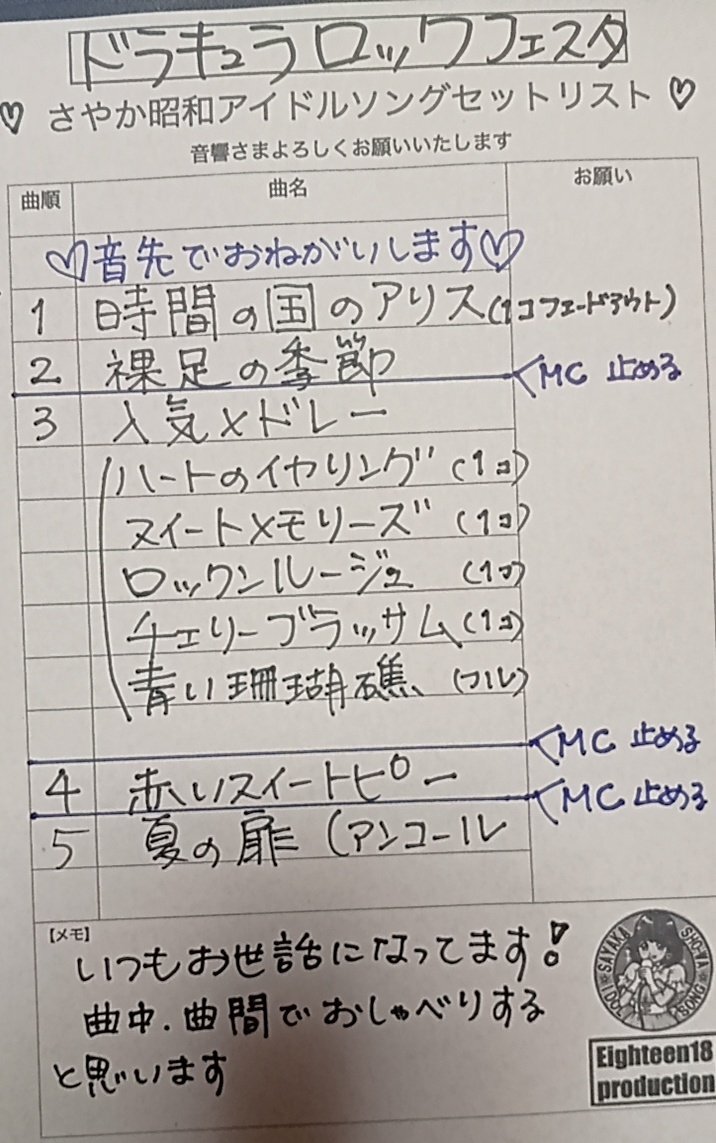 ドラキュラロックフェスタ
♡ さやか昭和アイドルソングセットリスト ♡
音響さまよろしくお願いいたします
曲順 曲名 お願い
♡音先でおねがいします♡
1 時間の国のアリス(1コフェードアウト)
2 裸足の季節
MC 止める
3 人気メドレー
ハートのイヤリング (1コ)
スイートメモリーズ (1コ)
ロックンルージュ (1コ)
チェリーブラッサム (1コ)
青い珊瑚礁 (フル)
MC 止める
4 赤いスイートピー
MC 止める
5 夏の扉 (アンコール
【メモ】
いつもお世話になってます!
曲中.曲間でおしゃべりする
と思います
SAYAKA SHOWA IDOL SONG
Eighteen18
production